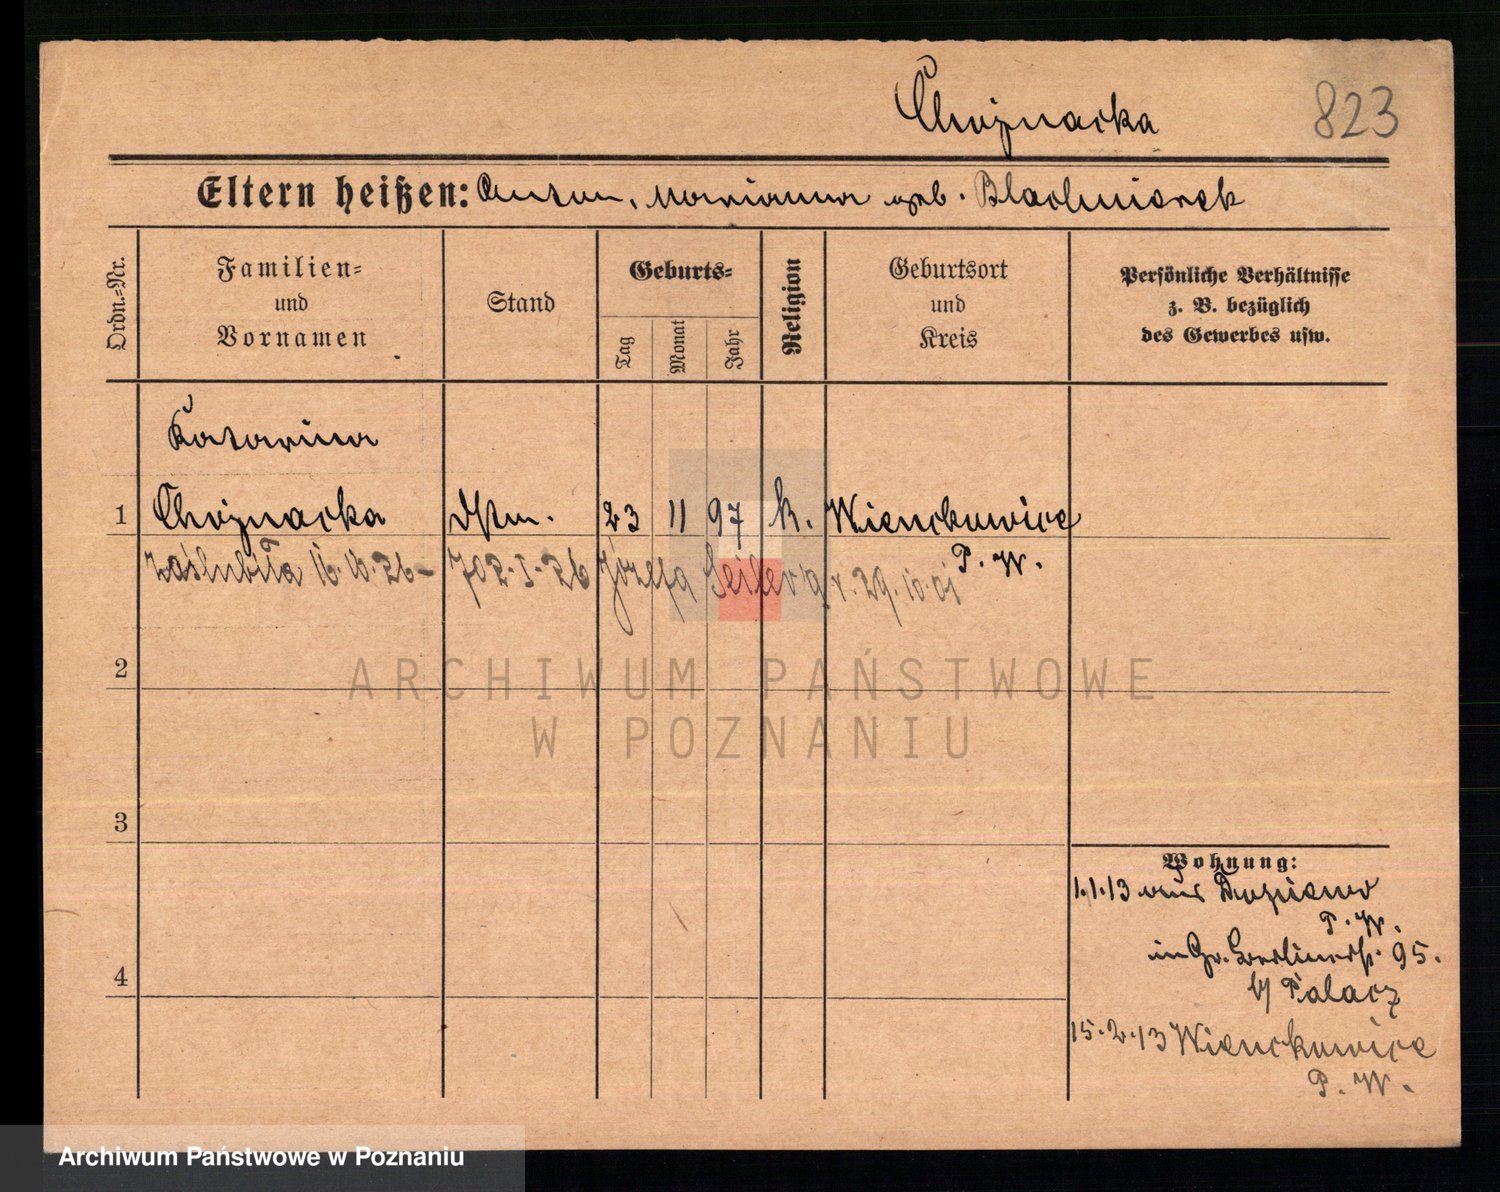 Chojnacka 823
Eltern heißen: Anton, Marianna geb. Blachnierek
Ordn.=Nr.
Familien=
und
Vornamen
Stand
Geburts=
Tag
Monat
Jahr
Religion
Geburtsort
und
Kreis
Persönliche Verhältnisse
z. B. bezüglich
des Gewerbes usw.
Katarina
1 Chojnacka Dstm. 23 11 97 k. Wienckowice
P. W.
zaślubiła 16.10.26 – 702-I-26 Józefa 29.10.01
2
ARCHIWUM PAŃSTWOWE
W POZNANIU
3
4
Wohnung:
1.1.13 aus
P. W.
in Gr. Berlinerst. 95.
b/ Palacz
15.2.13 Wienckowice
P. W.
Archiwum Państwowe w Poznaniu